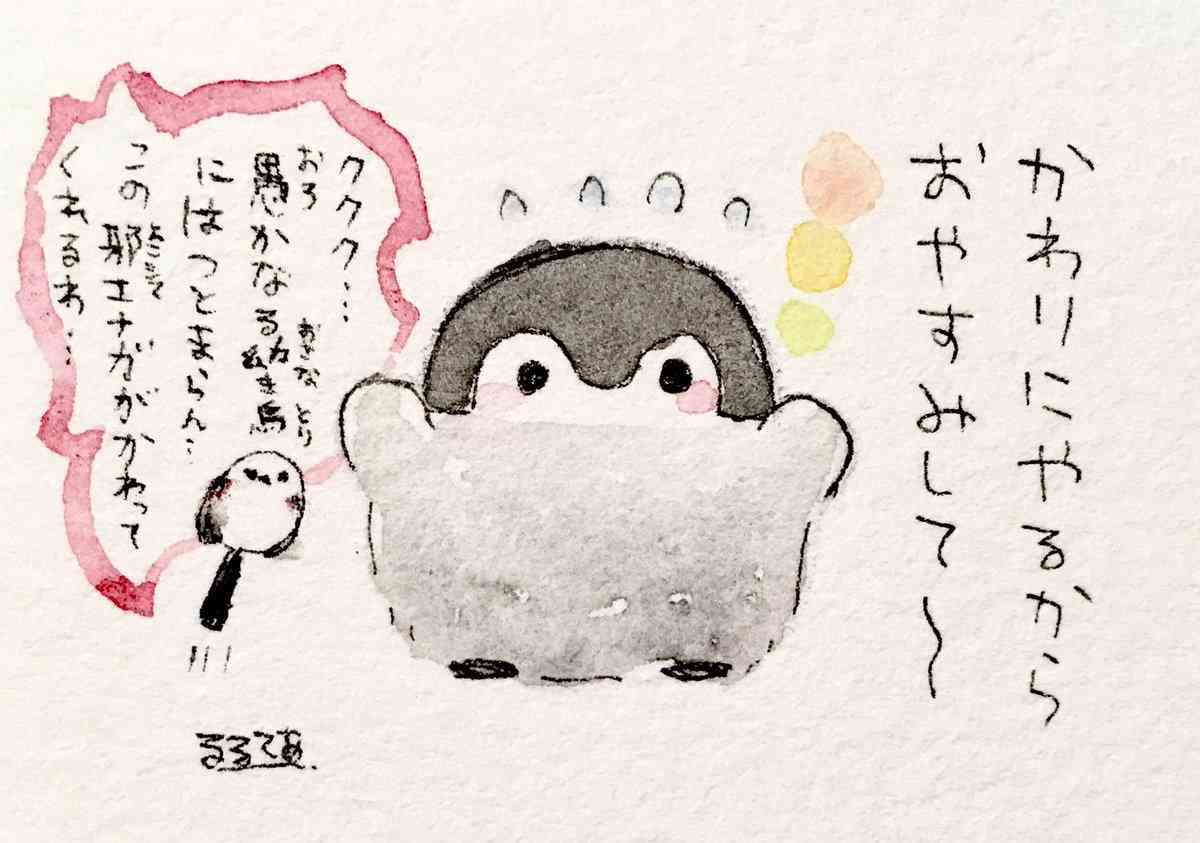 かわりにやるから
おやすみして〜
ククク…
おろ
おさな とり
愚かなる幼き鳥
にはつとまらん…
よこしま
この邪エナガがかわって
くれるわ…
るるてあ.